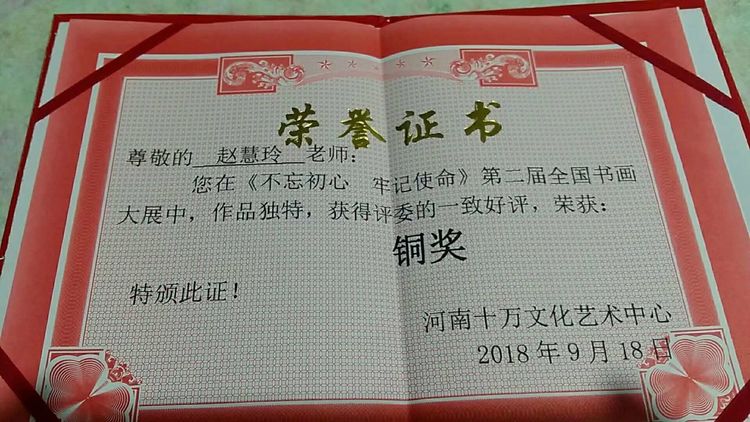 荣誉证书
尊敬的 赵慧玲 老师：
您在《不忘初心 牢记使命》第二届全国书画
大展中，作品独特，获得评委的一致好评，荣获：
铜奖
特颁此证！
河南十万文化艺术中心
2018 年 9 月 18 日